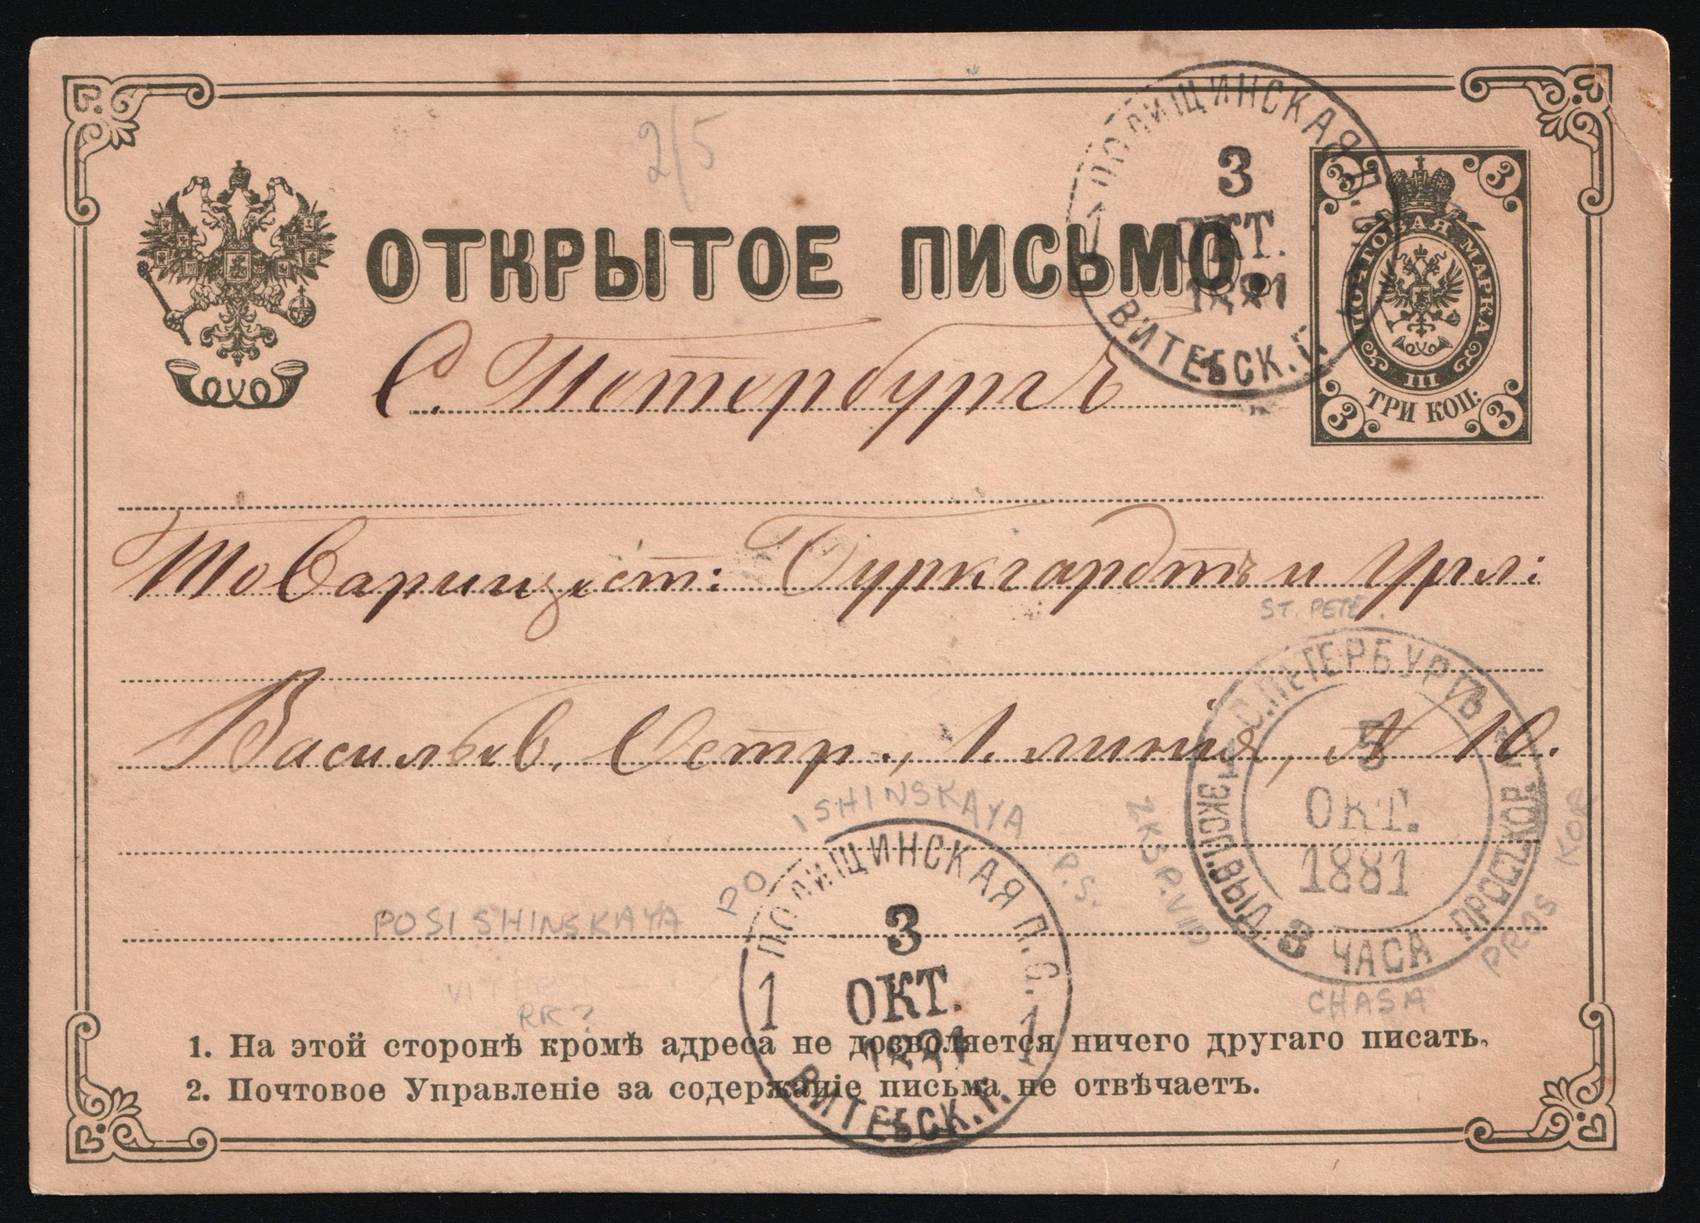 2/5
ПОЛИЩИНСКАЯ П.С.
3
ОКТ.
1881
ВИТЕБСК.Г.
1
3 3
ПОЧТОВАЯ МАРКА
III
ТРИ КОП:
3 3
ОТКРЫТОЕ ПИСЬМО.
С. Петербургъ
Товарищест: Буркгардтъ и Урл:
ST. PETE.
Васильев. Остр., 1. линія, № 10.
С.ПЕТЕРБУРГЪ
5
ОКТ.
1881
ЭКСП.ВЫД. 3 ЧАСА ПРОС.КОР.
2KSP.VID
CHASA
PROS
KOR
PO ISHINSKAYA P.S.
POSISHINSKAYA
RR?
ПОЛИЩИНСКАЯ П.С.
3
1 ОКТ. 1
1881
ВИТЕБСК.Г.
1. На этой сторонѣ кромѣ адреса не дозволяется ничего другаго писать.
2. Почтовое Управленіе за содержаніе письма не отвѣчаетъ.